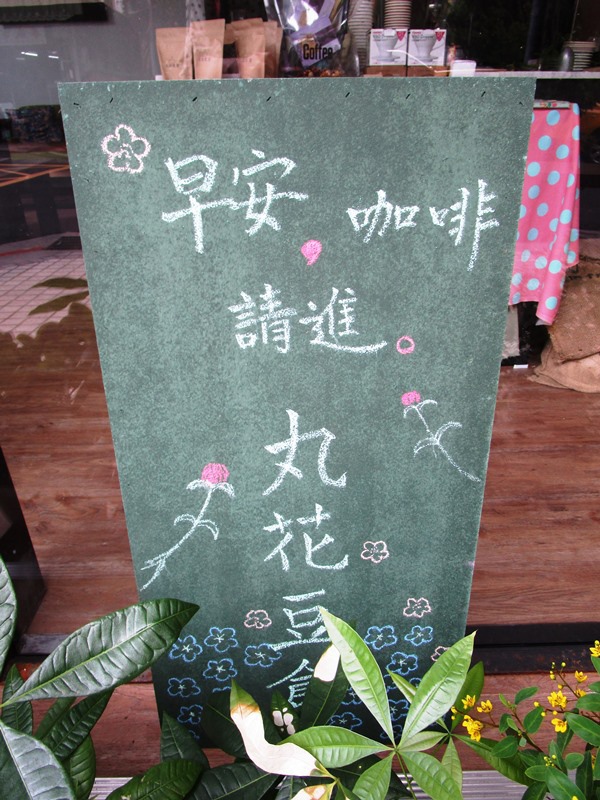 Coffee
早安，咖啡
請進。
丸花豆倉